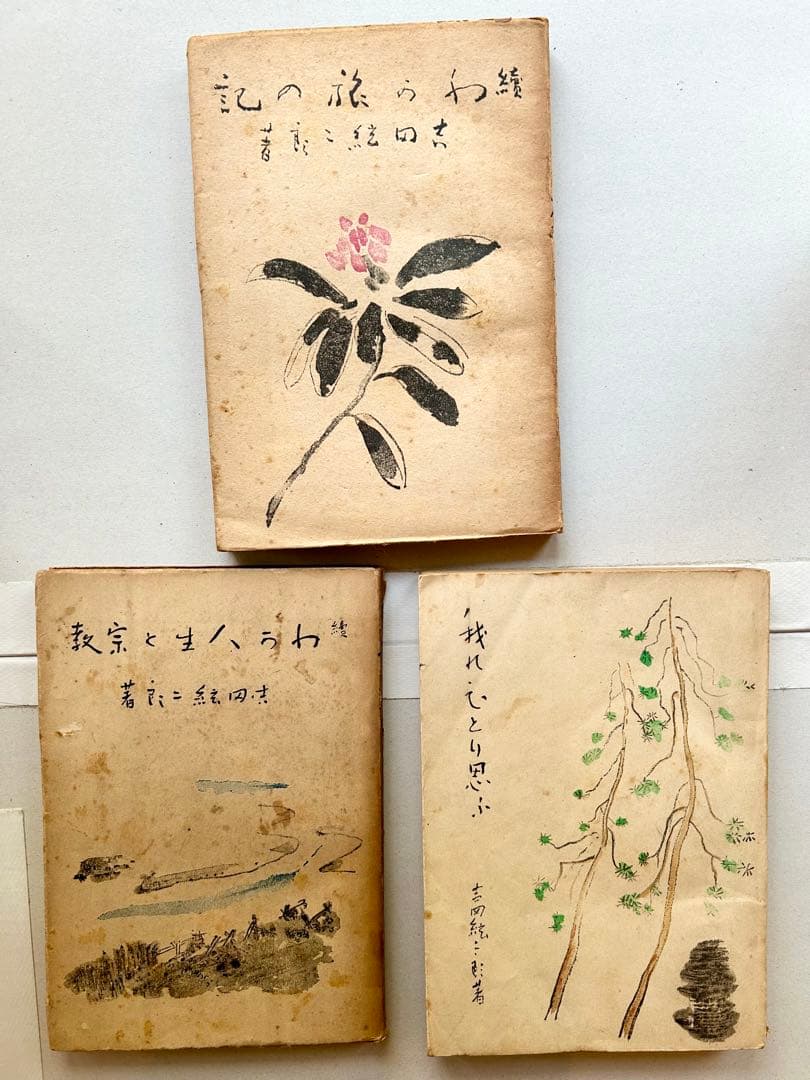 續わが旅の記
吉田絃二郎著
續わが人生と宗教
吉田絃二郎著
我れひとり思ふ
吉田絃二郎著